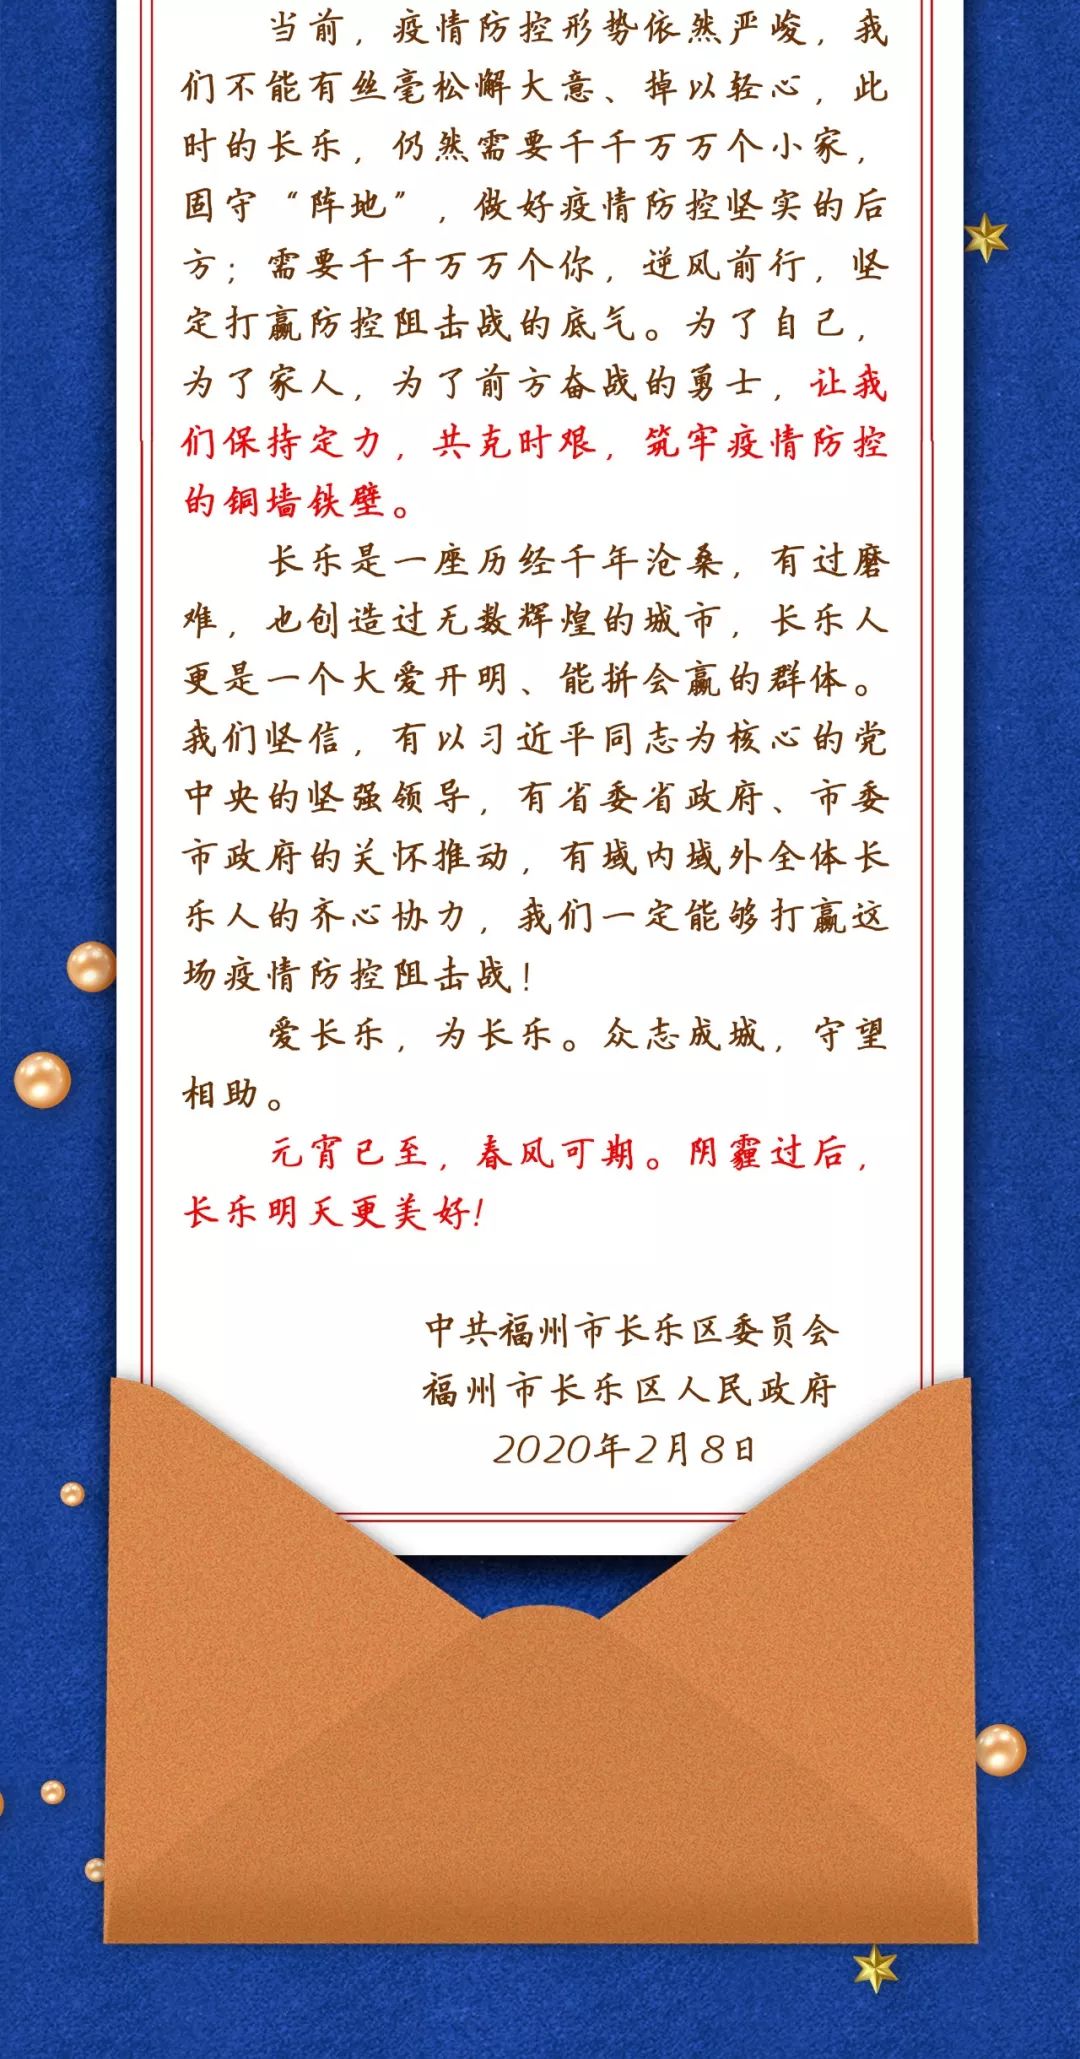 当前，疫情防控形势依然严峻，我
们不能有丝毫松懈大意、掉以轻心，此
时的长乐，仍然需要千千万万个小家，
固守“阵地”，做好疫情防控坚实的后
方；需要千千万万个你，逆风前行，坚
定打赢防控阻击战的底气。为了自己，
为了家人，为了前方奋战的勇士，让我
们保持定力，共克时艰，筑牢疫情防控
的铜墙铁壁。
长乐是一座历经千年沧桑，有过磨
难，也创造过无数辉煌的城市，长乐人
更是一个大爱开明、能拼会赢的群体。
我们坚信，有以习近平同志为核心的党
中央的坚强领导，有省委省政府、市委
市政府的关怀推动，有域内域外全体长
乐人的齐心协力，我们一定能够打赢这
场疫情防控阻击战！
爱长乐，为长乐。众志成城，守望
相助。
元宵已至，春风可期。阴霾过后，
长乐明天更美好！
中共福州市长乐区委员会
福州市长乐区人民政府
2020年2月8日